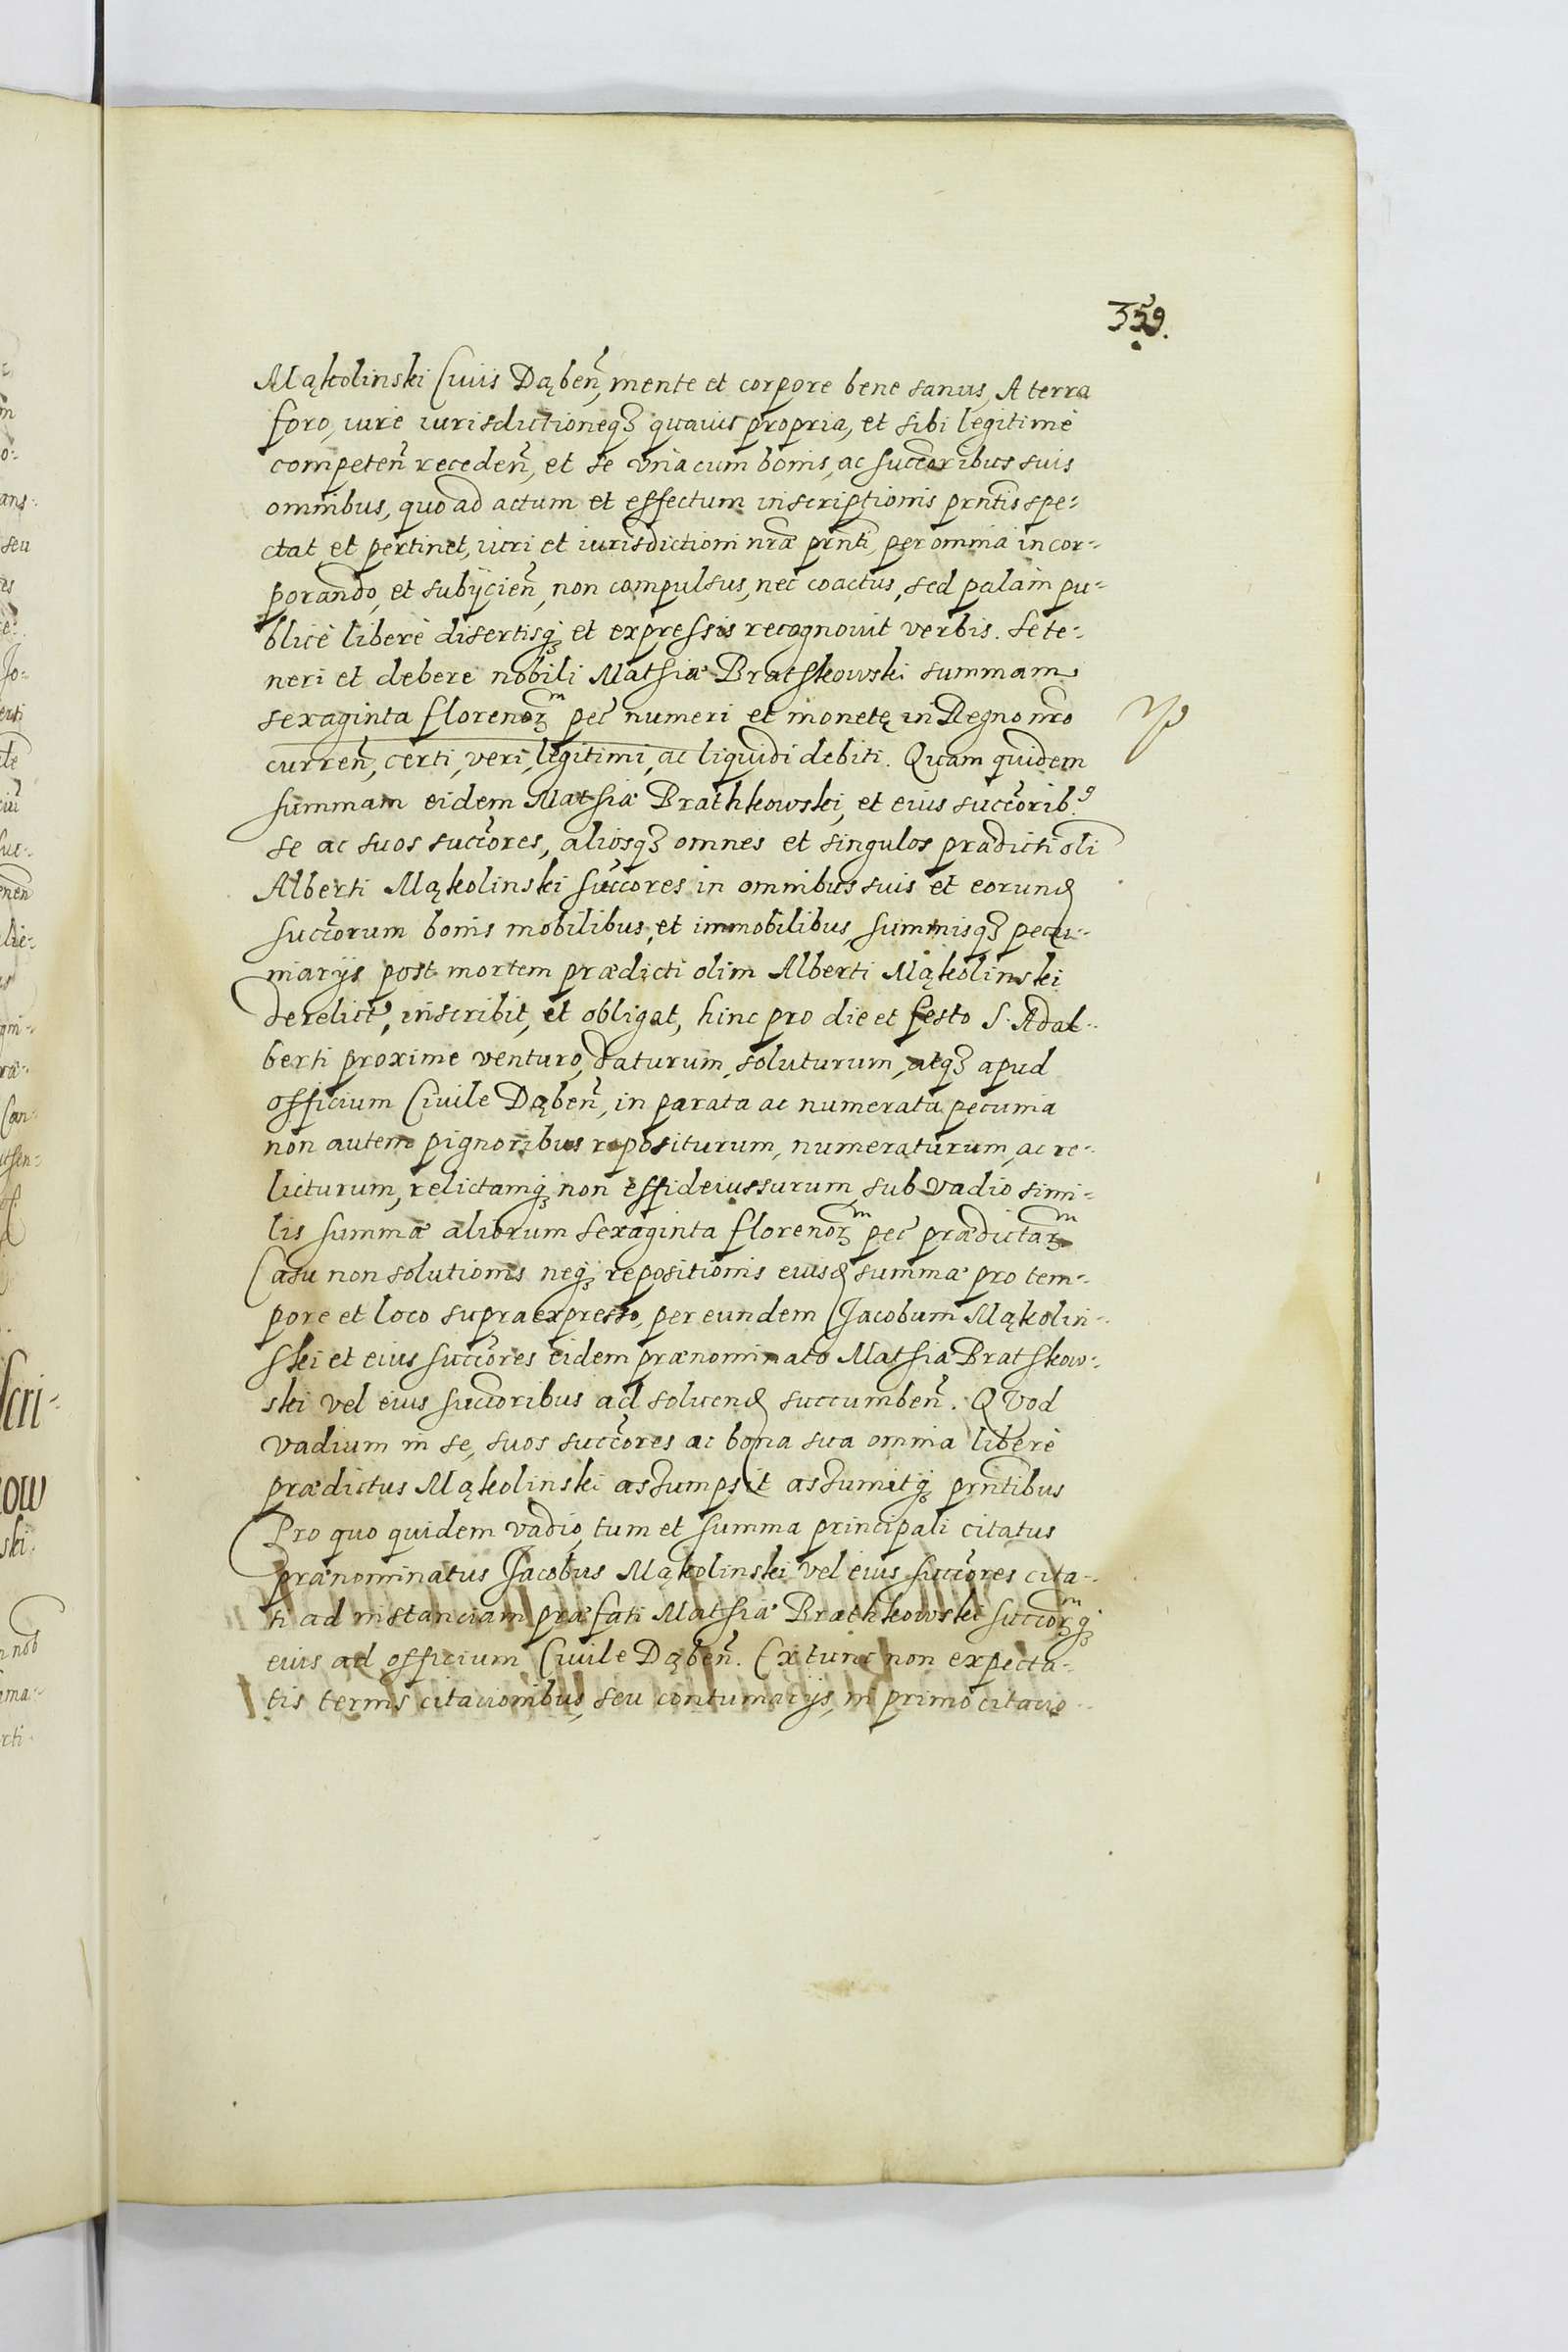 359.
Mąkolinski Ciuis Dąbeñ, mente et corpore bene sanus, A terra
foro, iure iurisdictioneqз quauis propria, et sibi legitimè
competeñ recedeñ, et se vna cum bonis, ac succoribus suis
omnibus, quo ad actum et effectum inscriptionis prntis spe-
ctat et pertinet, iuri et iurisdictioni nræ prnti, per omnia incor-
porando, et subijcieñ, non compulsus, nec coactus, sed palàm pu-
blicè liberè disertisqз et expressis recognouit verbis. Se te-
neri et debere nobili Mathiæ Brathkowski summam
sexaginta florenorum pec numeri et monetę in Regno nro
curreñ, certi, veri, legitimi, ac liquidi debiti. Quam quidem
summam eidem Mathiæ Brathkowski, et eius succorib9
se ac suos succores, aliosqз omnes et singulos prædicti oli
Alberti Mąkolinski succores in omnibus suis et eorund
succorum bonis mobilibus, et immobilibus, summisqз pecu-
niarijs post mortem prædicti olim Alberti Mąkolinski
derelict, inscribit, et obligat, hinc pro die et festo S. Adal-
berti proxime venturo, daturum, soluturum, atqз apud
officium Ciuile Dąbeñ, in parata ac numerata pecunia
non autem pignoribus repositurum, numeraturum, ac re-
licturum, relictamqз non effideiussurum, sub vadio simi-
lis summæ aliorum sexaginta florenorum pec prædictarum
Casu non solutionis neqз repositionis eiusd summæ pro tem-
pore et loco supraexpresso, per eundem Jacobum Mąkolin-
ski et eius succores eidem prænominato Mathiæ Brathkow-
ski vel eius succoribus ad soluend succumbeñ. QVod
vadium in se, suos succores ac bona sua omnia liberè
prædictus Mąkolinski assumpsit assumitqз prntibus
Pro quo quidem vadio, tum et summa principali citatus
prænominatus Jacobus Mąkolinski vel eius succores cita-
ti ad instanciam præfati Mathiæ Brathkowski succorumqз
eius ad officium Ciuile Dąbeñ. Ex tunc non expecta-
tis ternis citacionibus, seu contumacijs, in primo citacio-